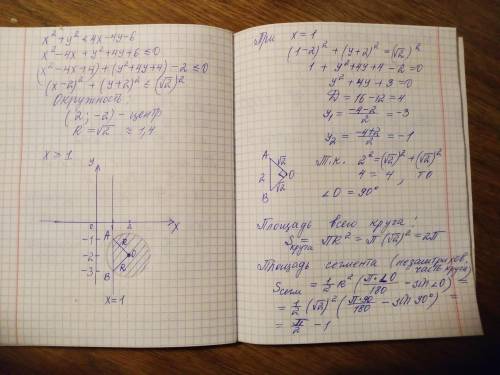 x² + y² ≤ 4x - 4y - 6
x² - 4x + y² + 4y + 6 ≤ 0
(x² - 4x + 4) + (y² + 4y + 4) - 2 ≤ 0
(x - 2)² + (y + 2)² ≤ (√2)²
Окружность:
(2; -2) - центр
R = √2 ≈ 1,4
x ≥ 1
y
0 2 x
-1 A
-2 R O
-3 B R
x = 1
При x = 1
(1-2)² + (y+2)² = (√2)²
1 + y² + 4y + 4 - 2 = 0
y² + 4y + 3 = 0
D = 16 - 12 = 4
y₁ = (-4-2)/2 = -3
y₂ = (-4+2)/2 = -1
A √2
2 O
B √2
Т.к. 2² = (√2)² + (√2)²
4 = 4, то
∠O = 90°
Площадь всего круга:
Sкруга = ПR² = π(√2)² = 2π
Площадь сегмента (незаштрихов.
часть круга)
Sсегм = 1/2 R² (π·∠O/180 - sin∠O) =
= 1/2 (√2)² (π·90/180 - sin 90°) =
= π/2 - 1